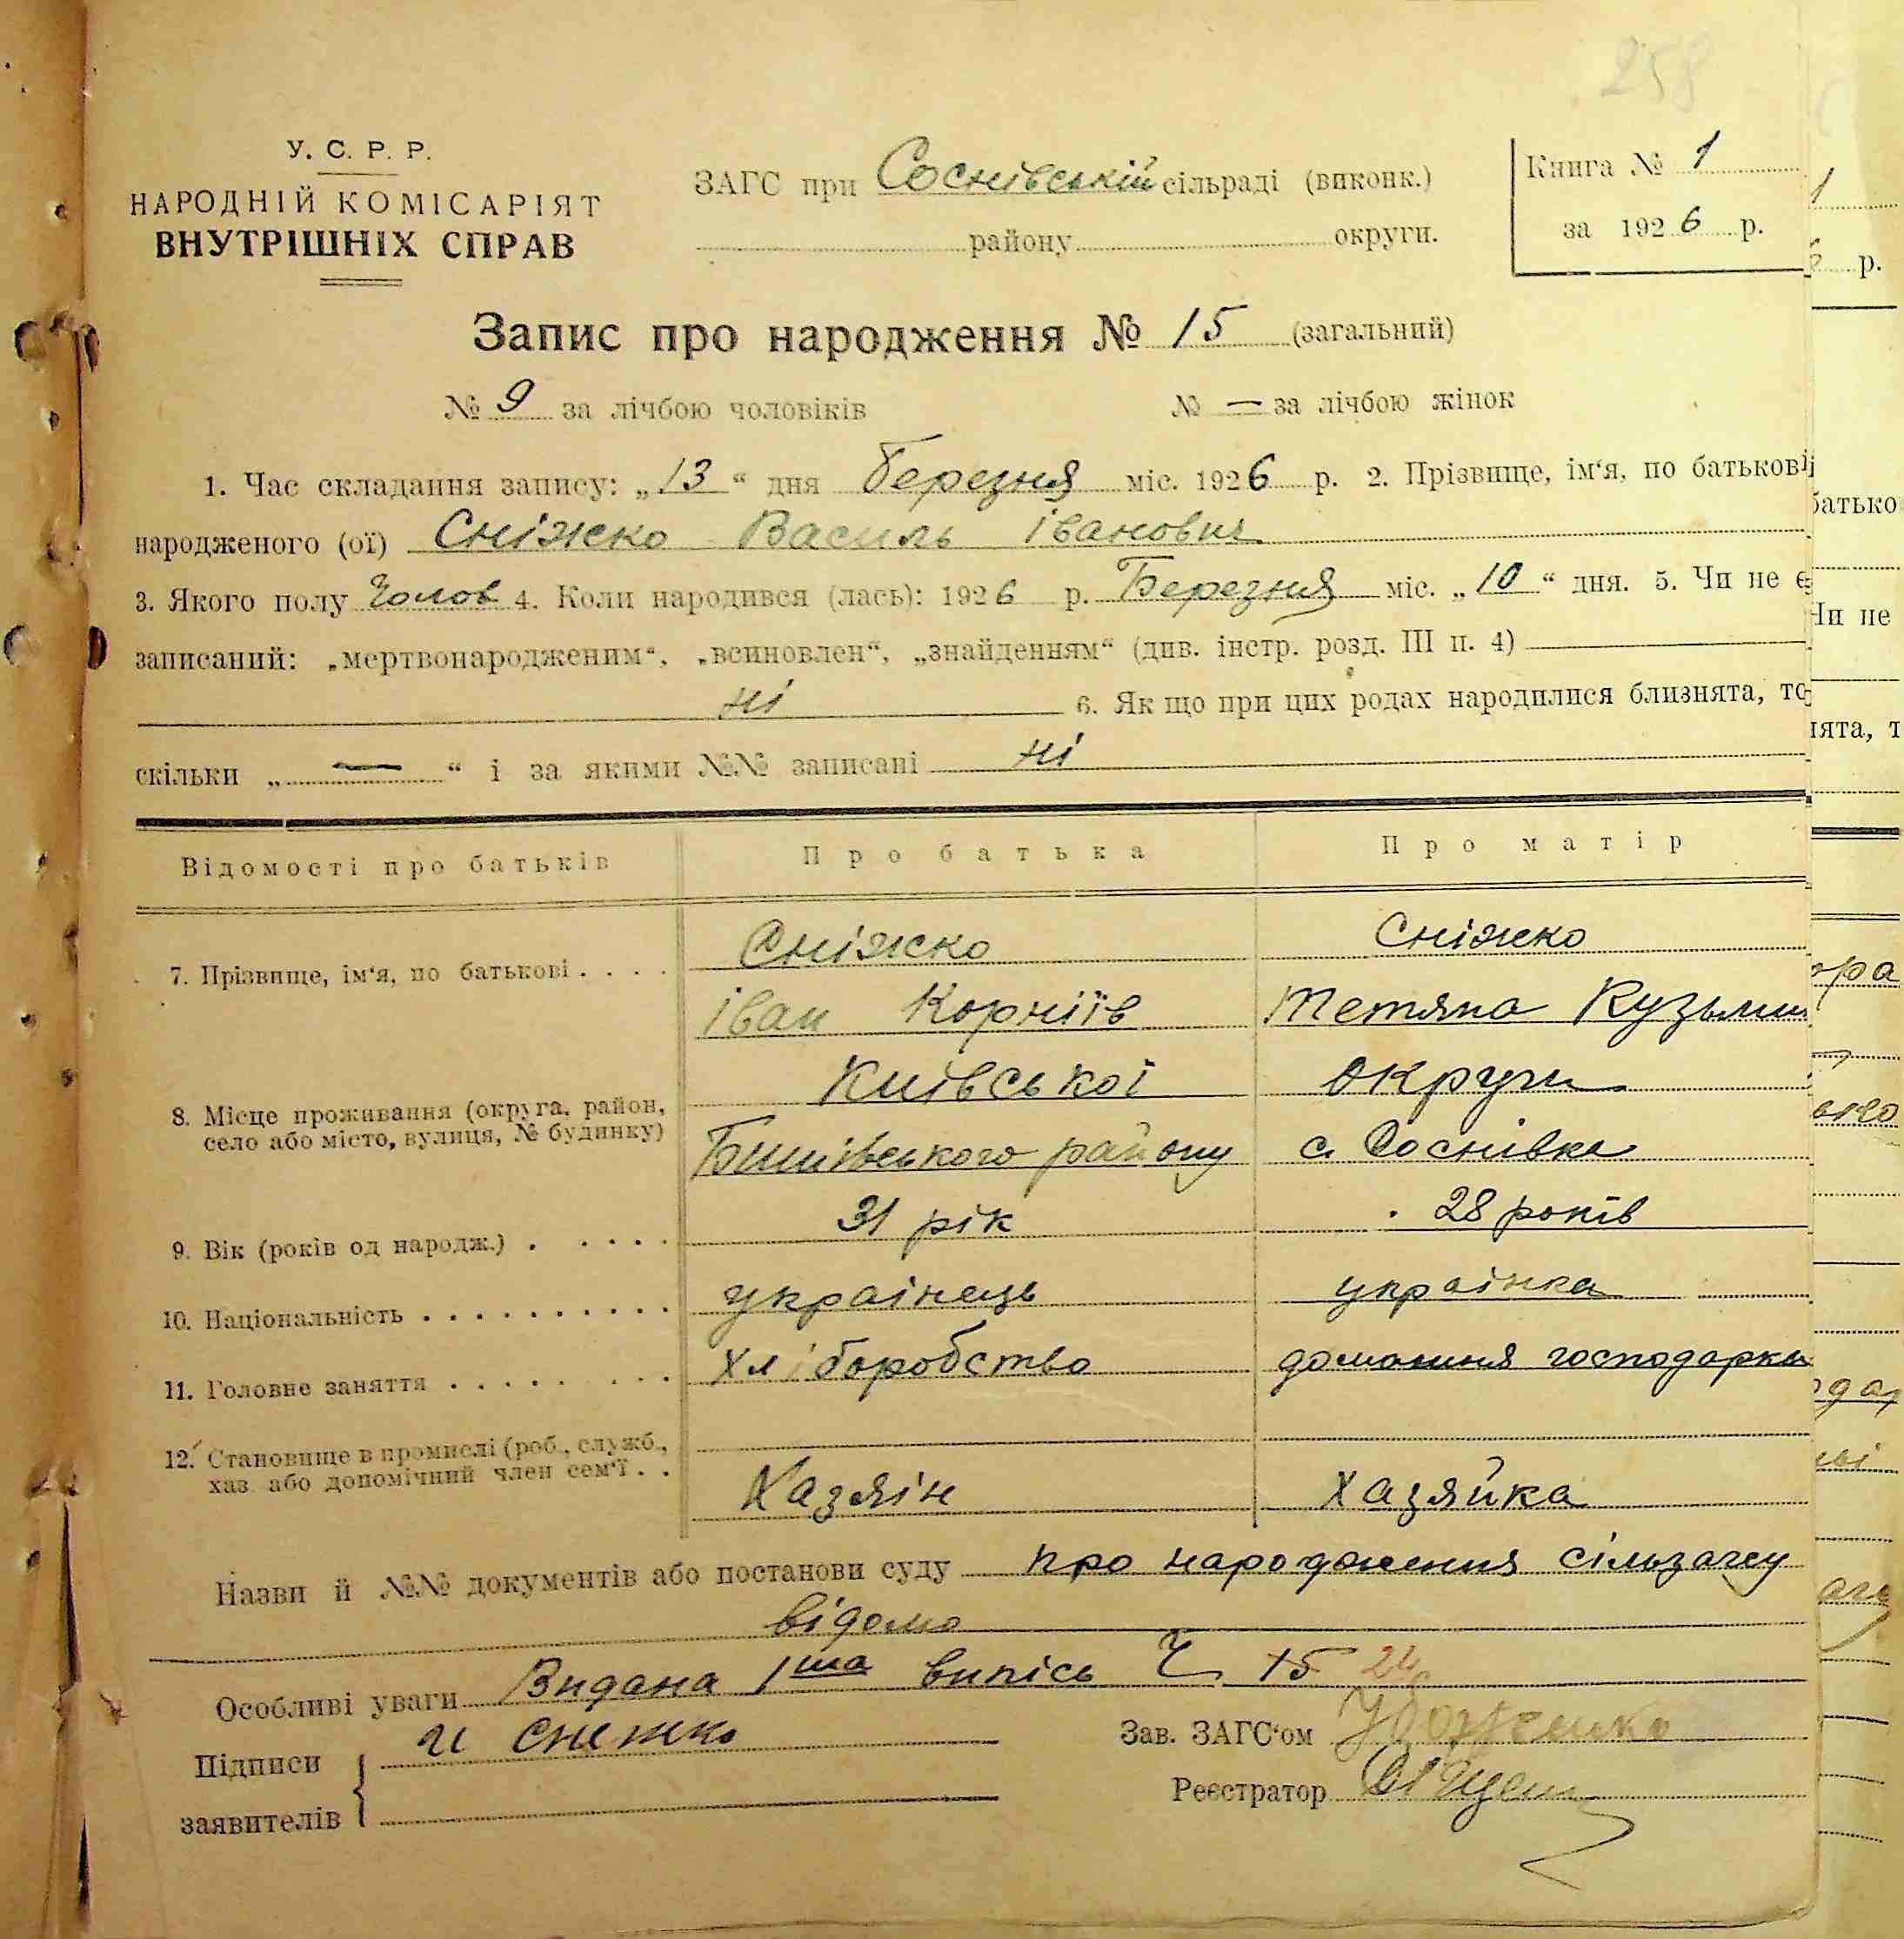 258
У. С. Р. Р.
НАРОДНІЙ КОМІСАРІЯТ
ВНУТРІШНІХ СПРАВ
ЗАГС при Соснівській сільраді (виконк.)
району округи.
Книга № 1
за 1926 р.
Запис про народження № 15 (загальний)
№ 9 за лічбою чоловіків № — за лічбою жінок
1. Час складання запису: „13“ дня березня міс. 1926 р. 2. Прізвище, ім‘я, по батькові
народженого (ої) Сніжко Василь Іванович
3. Якого полу Чолов 4. Коли народився (лась): 1926 р. Березня міс. „10“ дня. 5. Чи не є
записаний: „мертвонародженим“, „всиновлен“, „знайденням“ (див. інстр. розд. III п. 4)
ні 6. Як що при цих родах народилися близнята, то
скільки „—“ і за якими №№ записані ні
Відомості про батьків Про батька Про матір
7. Прізвище, ім‘я, по батькові . . . . Сніжко Сніжко
Іван Корніїв Тетяна Кузьмин
8. Місце проживання (округа, район, село або місто, вулиця, № будинку) Київської округи
Бишівського району с. Соснівка
9. Вік (років од народж.) . . . . . 31 рік 28 років
10. Національність . . . . . . . . . . українець українка
11. Головне заняття . . . . . . . . хліборобство домашня господарка
12. Становище в промислі (роб., служб.,
хаз. або допомічний член сем‘ї . . Хазяїн Хазяйка
Назви й №№ документів або постанови суду про народження сільзагсу
відомо
Особливі уваги Видана 1ша випісь Ч. 15 24
Підписи заявителів и Снежко
Зав. ЗАГС‘ом
Реєстратор
1
р.
батько
Чи не